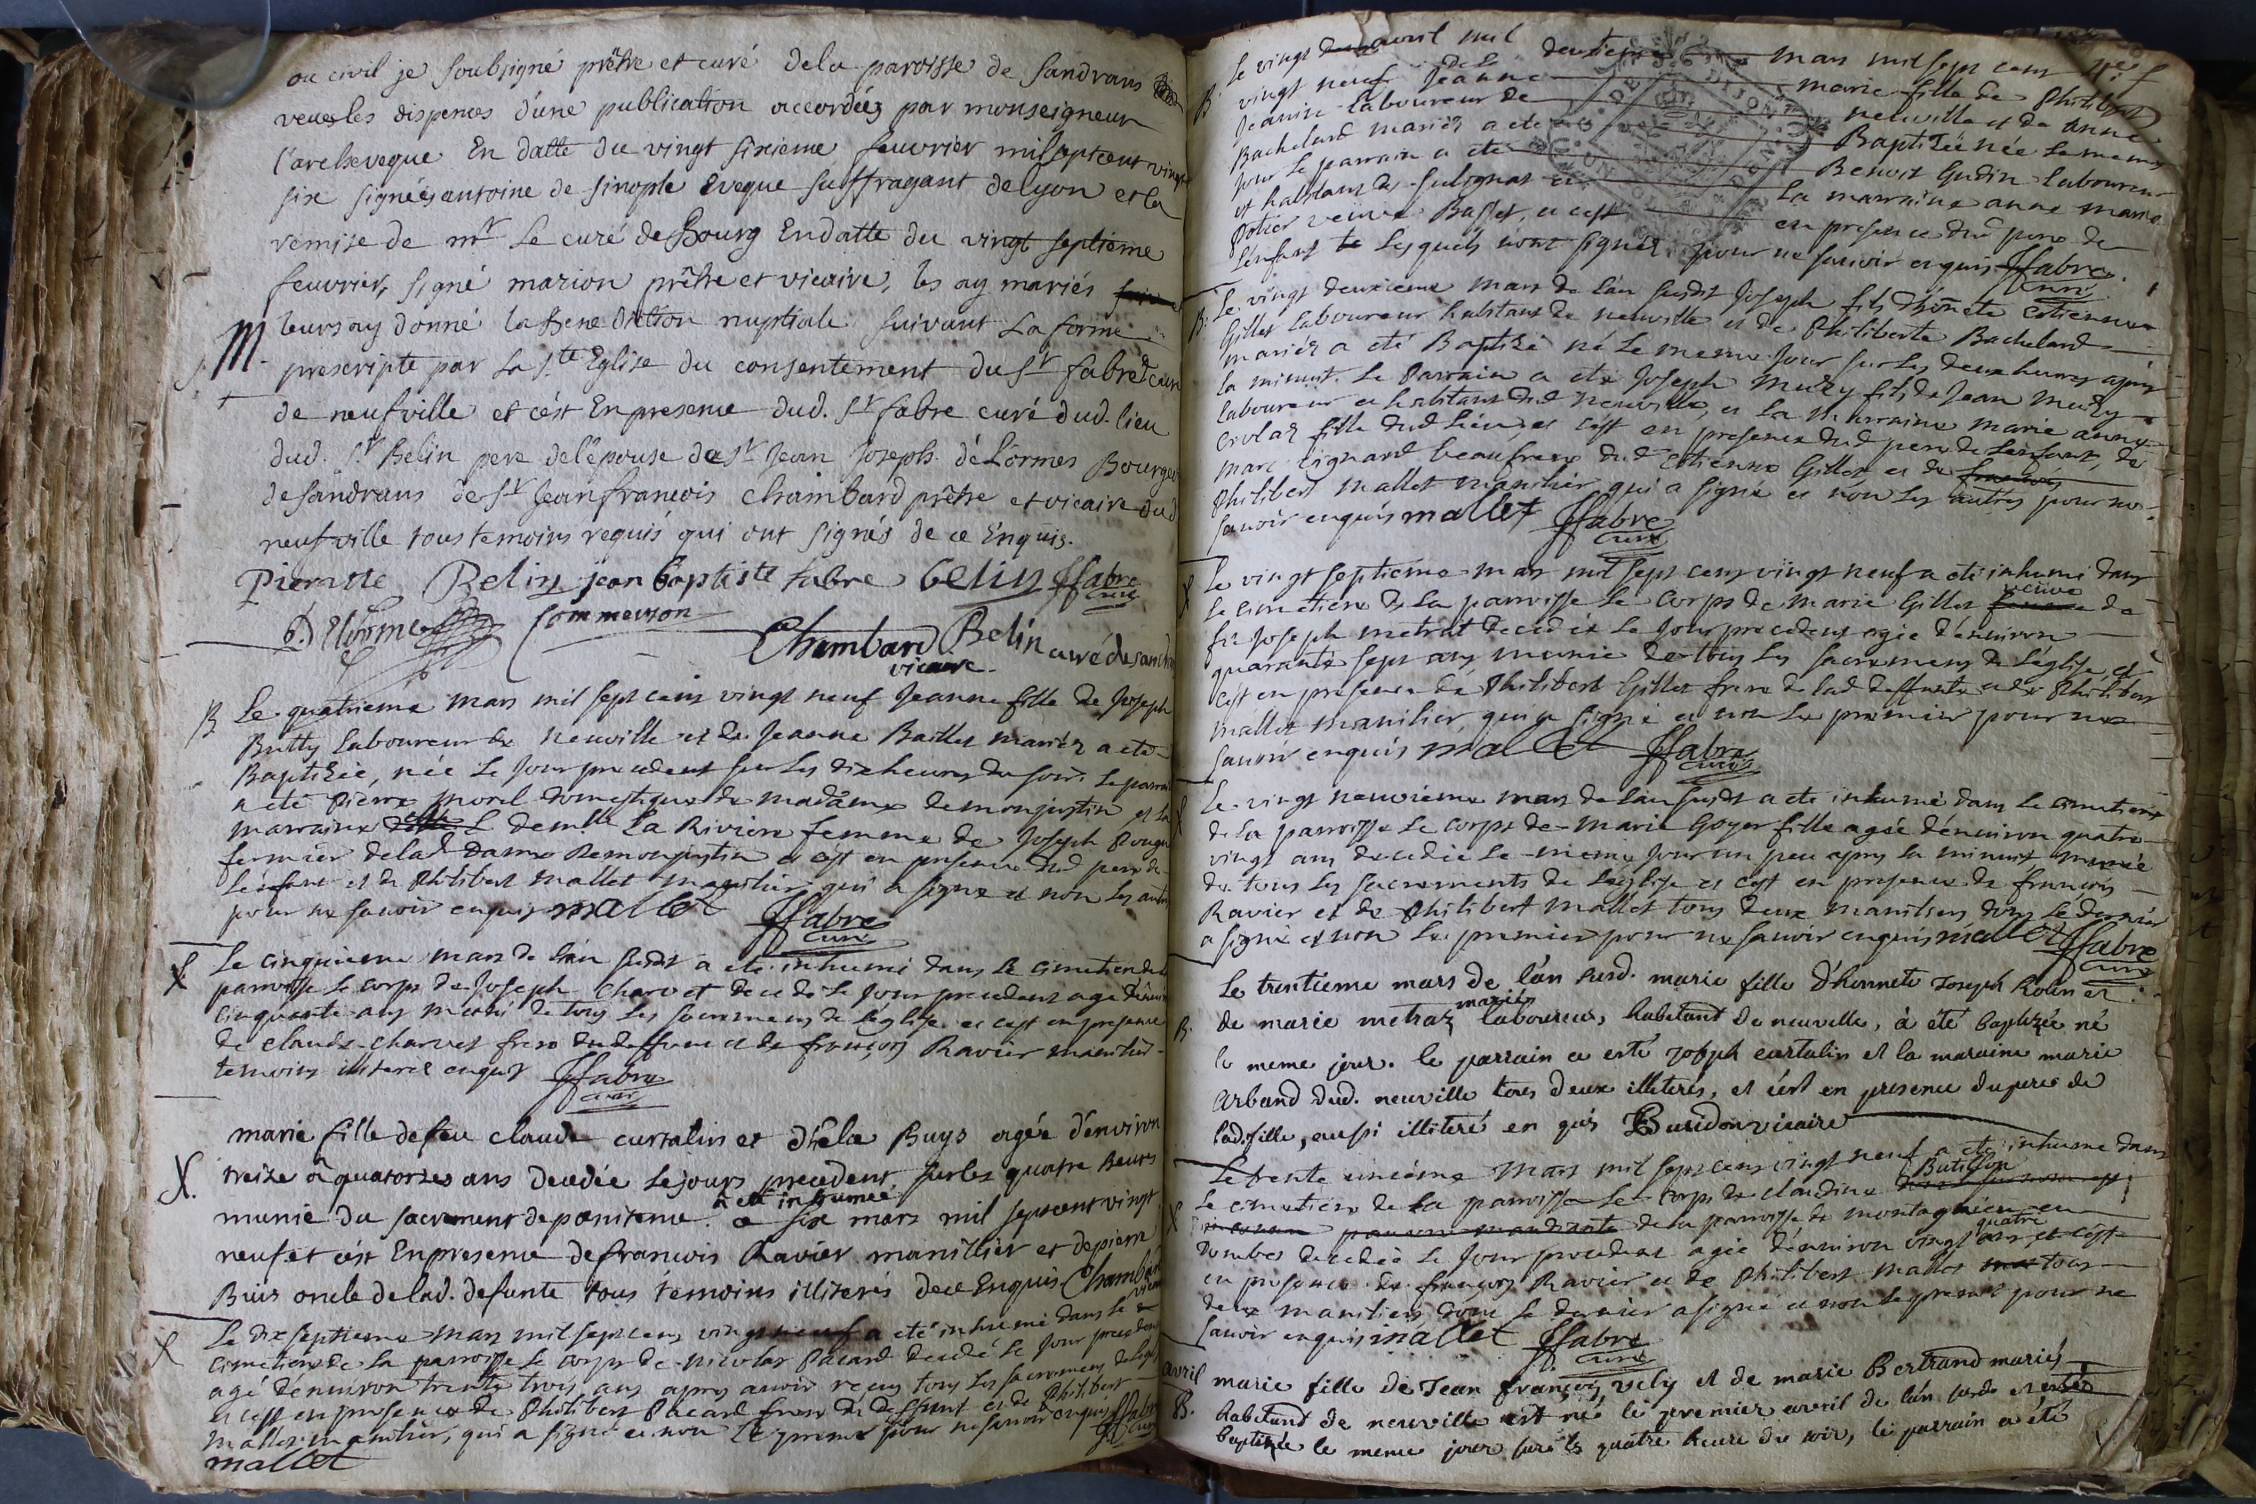 ou civil je soubsigné prêtre et curé dela paroisse de sandrans
veues les dispences d'une publication accordées par monseigneur
l'archeveque En datte du vingt sixieme feuvrier mil sept cent vingt
six signées antoine de sinople Eveque suffragant de lyon et la
remise de mr le curé de Bourg En datte du vingt septieme
feuvrier, signé marion prêtre et vicaire, les ay mariés
M. leurs ay donné la Benediction nuptiale suivant la forme
prescripte par la ste Eglise du consentement du Sr fabre curé
de neufville et c'est En presence dud. Sr fabre curé dud. lieu
dud. Sr Belin pere de l'épouse de Sr Jean Joseph délormes Bourgeois
de sandrans de Sr Jean francois chambard prêtre et vicaire dud
neufville tous temoins requis qui ont signés de ce Enquis.
Pieratte Belin jean baptiste fabre belin ffabre
curé
Commerson
Chambard Belin curé de sandrans
vicaire
B Le quatrieme mars mil sept cens vingt neuf Jeanne fille de Joseph
Butty laboureur de neuville et de Jeanne Baillet mariez a eté
Baptisée, née le jour precedent sur les dix heures du soir. le parrain
a eté Pierre morel domestique de madame demonjustin et la
marraine demlle La Riviere femme de Joseph
fermier de lad dame Demonjustin et c'est en presence dud pere de
l'enfant et de Philibert mallet manilier qui a signé et non les autres
pour ne savoir enquis mallet ffabre
curé
X Le cinquieme mars de l'an susdit a eté inhumé dans le cimetiere de la
parroisse le corps de Joseph Charvet decedé le jour precedent agé d'environ
cinquante ans muni de tous les sacremens de l'eglise et c'est en presence
de claude charvet frere du deffunt et de françois Ravier manilier
temoins illiterés enquis ffabre
curé
marie fille de feu claude curtalin et d'hela Buys agée d'environ
X. treize a quatorze ans decedée le jours precedent sur les quatre heures
munie du sacrement de pœnitence. a eté inhumée
le six mars mil sept cent vingt
neuf et c'est En presence de francois Ravier manillier et de pierre
Buis oncle de lad. defunte tous témoins illiterés de ce Enquis. Chambard
vicaire
X Le dix septieme mars mil sept cens vingt neuf a eté inhumé dans le
cimetiere de la parroisse le corps de nicolas Pacard decedé le jour precedent
agé d'environ trente trois ans apres avoir reçu tous les sacremens de l'eglise
et c'est en presence de Philibert Pacard frere du deffunt et de Philibert
mallet manilier, qui a signé et non le premier pour ne savoir enquis ffabre
mallet curé
B. Le vingt deuxieme mars mil sept cens
vingt neuf Jeanne marie fille de Philibert
Jeanin laboureur de neuville et de anne
Bachelard mariez a eté Baptisée née le meme
jour le parrain a eté Benoit Gudin laboureur
et habitant de sulignat et la marraine anne marie
Potier veuve Basset, et c'est en presence du pere de
l'enfant lesquels n'ont signéz pour ne savoir enquis ffabre
curé
B. Le vingt deuxieme mars de l'an susdit Joseph fils d'honete Estienne
Gillet laboureur habitant de neuville et de Philiberte Bachelard
mariez a eté Baptisé né le meme jour sur les deux heures apres
la minuit. Le Parrain a eté Joseph mery fils de Jean mery
laboureur et habitant dud neuville et la marraine marie anne
fille dud lieu, et c'est en presence dud pere de l'enfant, de
marc cignard beaufrere dud Estienne Gillet et de
Philibert mallet manilier, qui a signé et non les autres pour ne
savoir enquis mallet ffabre
curé
X Le vingt septieme mars mil sept cens vingt neuf a eté inhumé dans
le cimetiere de la parroisse le corps de marie Gillet veuve de
feu Joseph metrat decedée le jour precedent agée d'environ
quarante sept ans munie de tous les sacremens de l'eglise, et
c'est en presence de Philibert Gillet frere de lad deffunte et de Philibert
mallet manilier qui a signé et non le premier pour ne
savoir enquis mallet ffabre
curé
X Le vingt neuvieme mars de l'an susdit a eté inhumé dans le cimetiere
de la parroisse le corps de marie Goyer fille agée d'environ quatre
vingt ans decedée le meme jour un peu apres la minuit munie
de tous les sacrements de l'eglise et c'est en presence de françois
Ravier et de Philibert mallet tous deux maniliers dont le dernier
a signé et non le premier pour ne savoir enquis mallet ffabre
curé
Le trentieme mars de l'an susd. marie fille d'honnete Joseph Rolin et
B. de marie metraz mariés laboureur, habitant de neuville, à été baptizée né
le meme jour. le parrain a esté joseph curtalin et la maraine marie
Arband dud. neuville tous deux illiterés, et c'est en presence du pere de
lad. fille, aussi illiteré en quis Buridon vicaire
X Le trente unieme mars mil sept cens vingt neuf a eté inhumé dans
le cimetiere de la parroisse le corps de claudine Butillon
de la parroisse de montagnieu en
Dombes decedée le jour precedent agée d'environ vingt quatre ans, et c'est
en presence de françois Ravier et de Philibert mallet tous
deux maniliers dont le dernier a signé et non le premier pour ne
savoir enquis mallet ffabre
curé
avril marie fille de Jean françois vely et de marie Bertrand mariés
B. habitant de neuville est né le premier avril de l'an susd. et
baptizée le meme jour sur les quatre heure du soir, le parrain a été